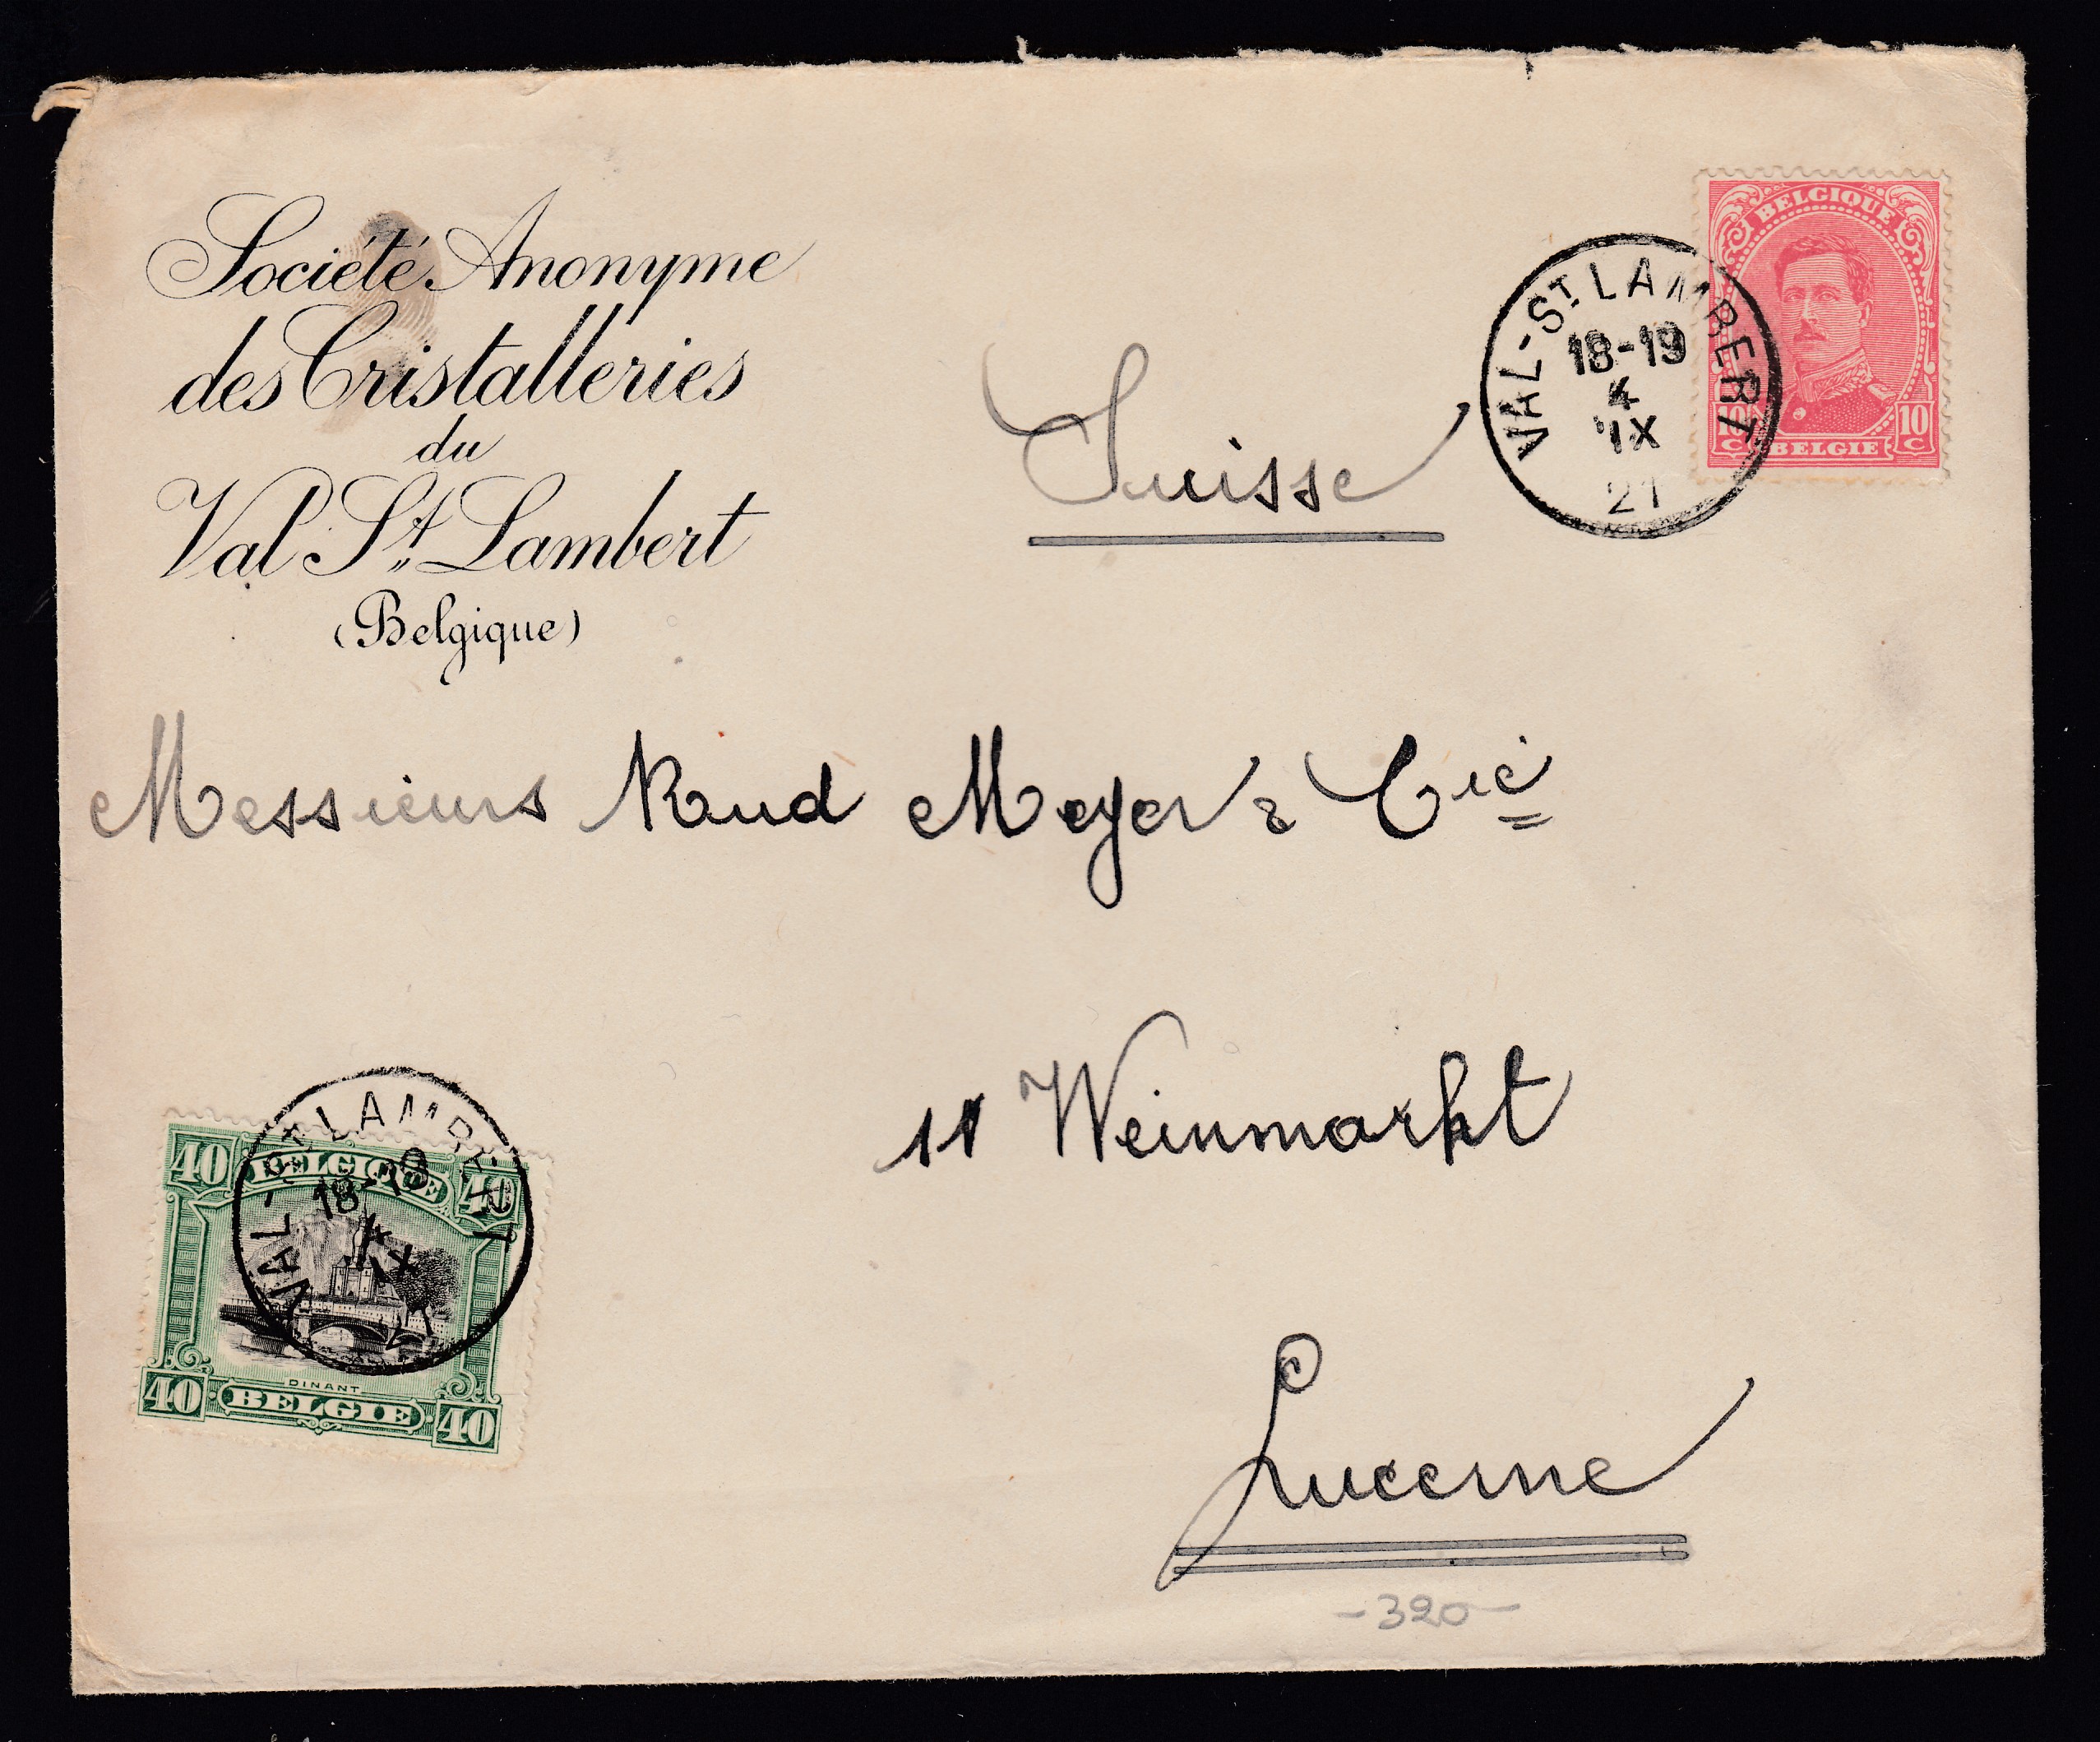 Société Anonyme
des Cristalleries
du
Val St. Lambert
(Belgique)
BELGIQUE
10 C 10 C
BELGIE
VAL-ST LAMBERT
18-19
4
IX
21
Suisse
Messieurs Rud Meyer & Cie
11 Weinmarkt
Lucerne
-320-
40 BELGIQUE 40
DINANT
40 BELGIE 40
VAL-ST LAMBERT
18-19
4
IX
21